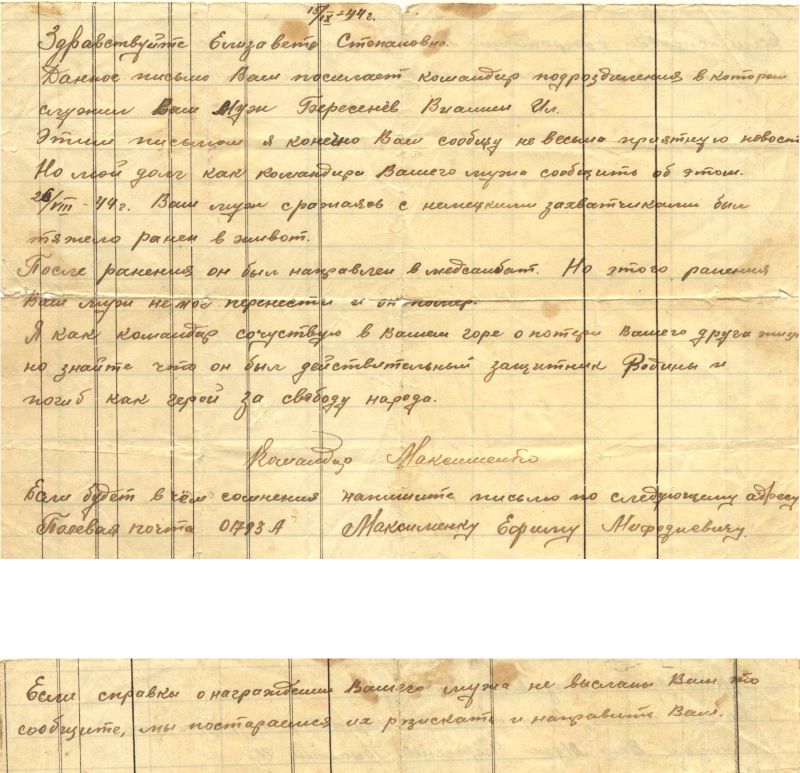 15/IX-44г.
Здравствуйте Елизавета Степановна.
Данное письмо Вам посилает командир подрозделения в котором
служил Ваш Муж Бересенёв Ил.
Этим письмом я конечно Вам сообщу не весьма приятную новость
Но мой долг как командира Вашего мужа сообщить об этом.
26/VIII-44г. Ваш муж сражаясь с немецкими захватчиками был
тяжело ранен в живот.
После ранения он был направлен в медсанбат. Но этого ранения
Ваш муж не мог перенести и он помер.
Я как командир сочуствую в Вашем горе о потери Вашего друга
но знайте что он был действятельный защитник Родины и
погиб как герой за свободу народа.
Командир Максименко
Если будет в чём сомнения напишите письмо по следующему адресу
Полевая почта 01793 А Максименку Ефиму Мифодиевичу.
Если справки о награждении Вашего мужа не высланы Вам то
сообщите, мы постараемся их рзискать и направить Вам.